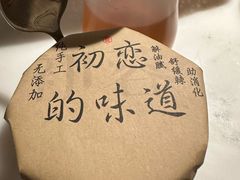 初恋
的味道
纯手工
无添加
解油腻
舒缓辣
助消化